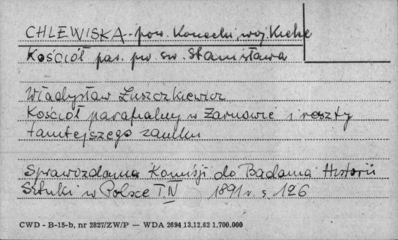 CHLEWISKA - pow. Konecki, woj. Kieleckie
Kościół par. pw. św. Stanisława
Władysław Łuszczkiewicz
Kościół parafialny w Żarnowie i reszty
tamtejszego zamku
Sprawozdania Komisji do Badania Historii
Sztuki w Polsce T IV 1891 r. s. 126
CWD - B-15-b, nr 2827/ZW/P — WDA 2694 13.12.62 1.700.000